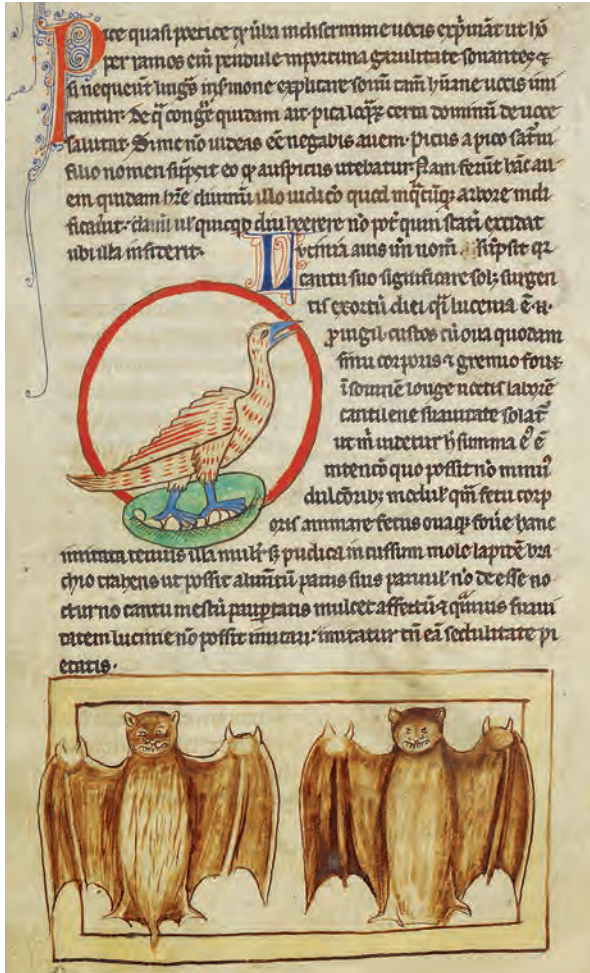 Pice quasi poetice qr ulla indiscrimine uocis exprimat ut hō
per ramos eni pendule inportuna garulitate sonantes ⁊
si nequeunt linguas in sermone explicare sonū tam humane uocis imi
tantur. de qua congrue quidam ait. pica loquax certa dominū de uoce
saluto. Si me nō uideas eē negabis auem. Picus a pico saturni
filio nomen sūpsit eo qr auspicus utebatur. Nam ferūt hāc au
em quidam
illo iudicō quod arbore nidi
ficauit. clauū ul' quicqd diu herere nō pot quin statī excidat
ubi illa insiderit. Lucinia auis
nom sūpsit qr
cantu suo significare solꝫ surgen
tis exortū diei qsi lucenia ē. ⁊
puigil custos cū oua quodam
sinu corporis ⁊ gremio fouꝫ
īsomnē longe noctis laborē
cantilene suauitate solat
ut m uidetur hͥ summa eꝰ ē
intencō quo possit nō minuꝰ
dulcōribꝫ modulis qm fetu corp
oris animare fetus ouaqꝫ fouē hanc
imitata tenuis illa mulier sꝫ pudica incussum mole lapidē bra
chio trahens ut possit alimtū panis suis paruulis nō de esse no
cturno cantu mestū paupertatis mulcet affectū ⁊ quis suaui
tatem lucinie nō possit imitari. imitatur tn eā sedulitate pi
etatis.